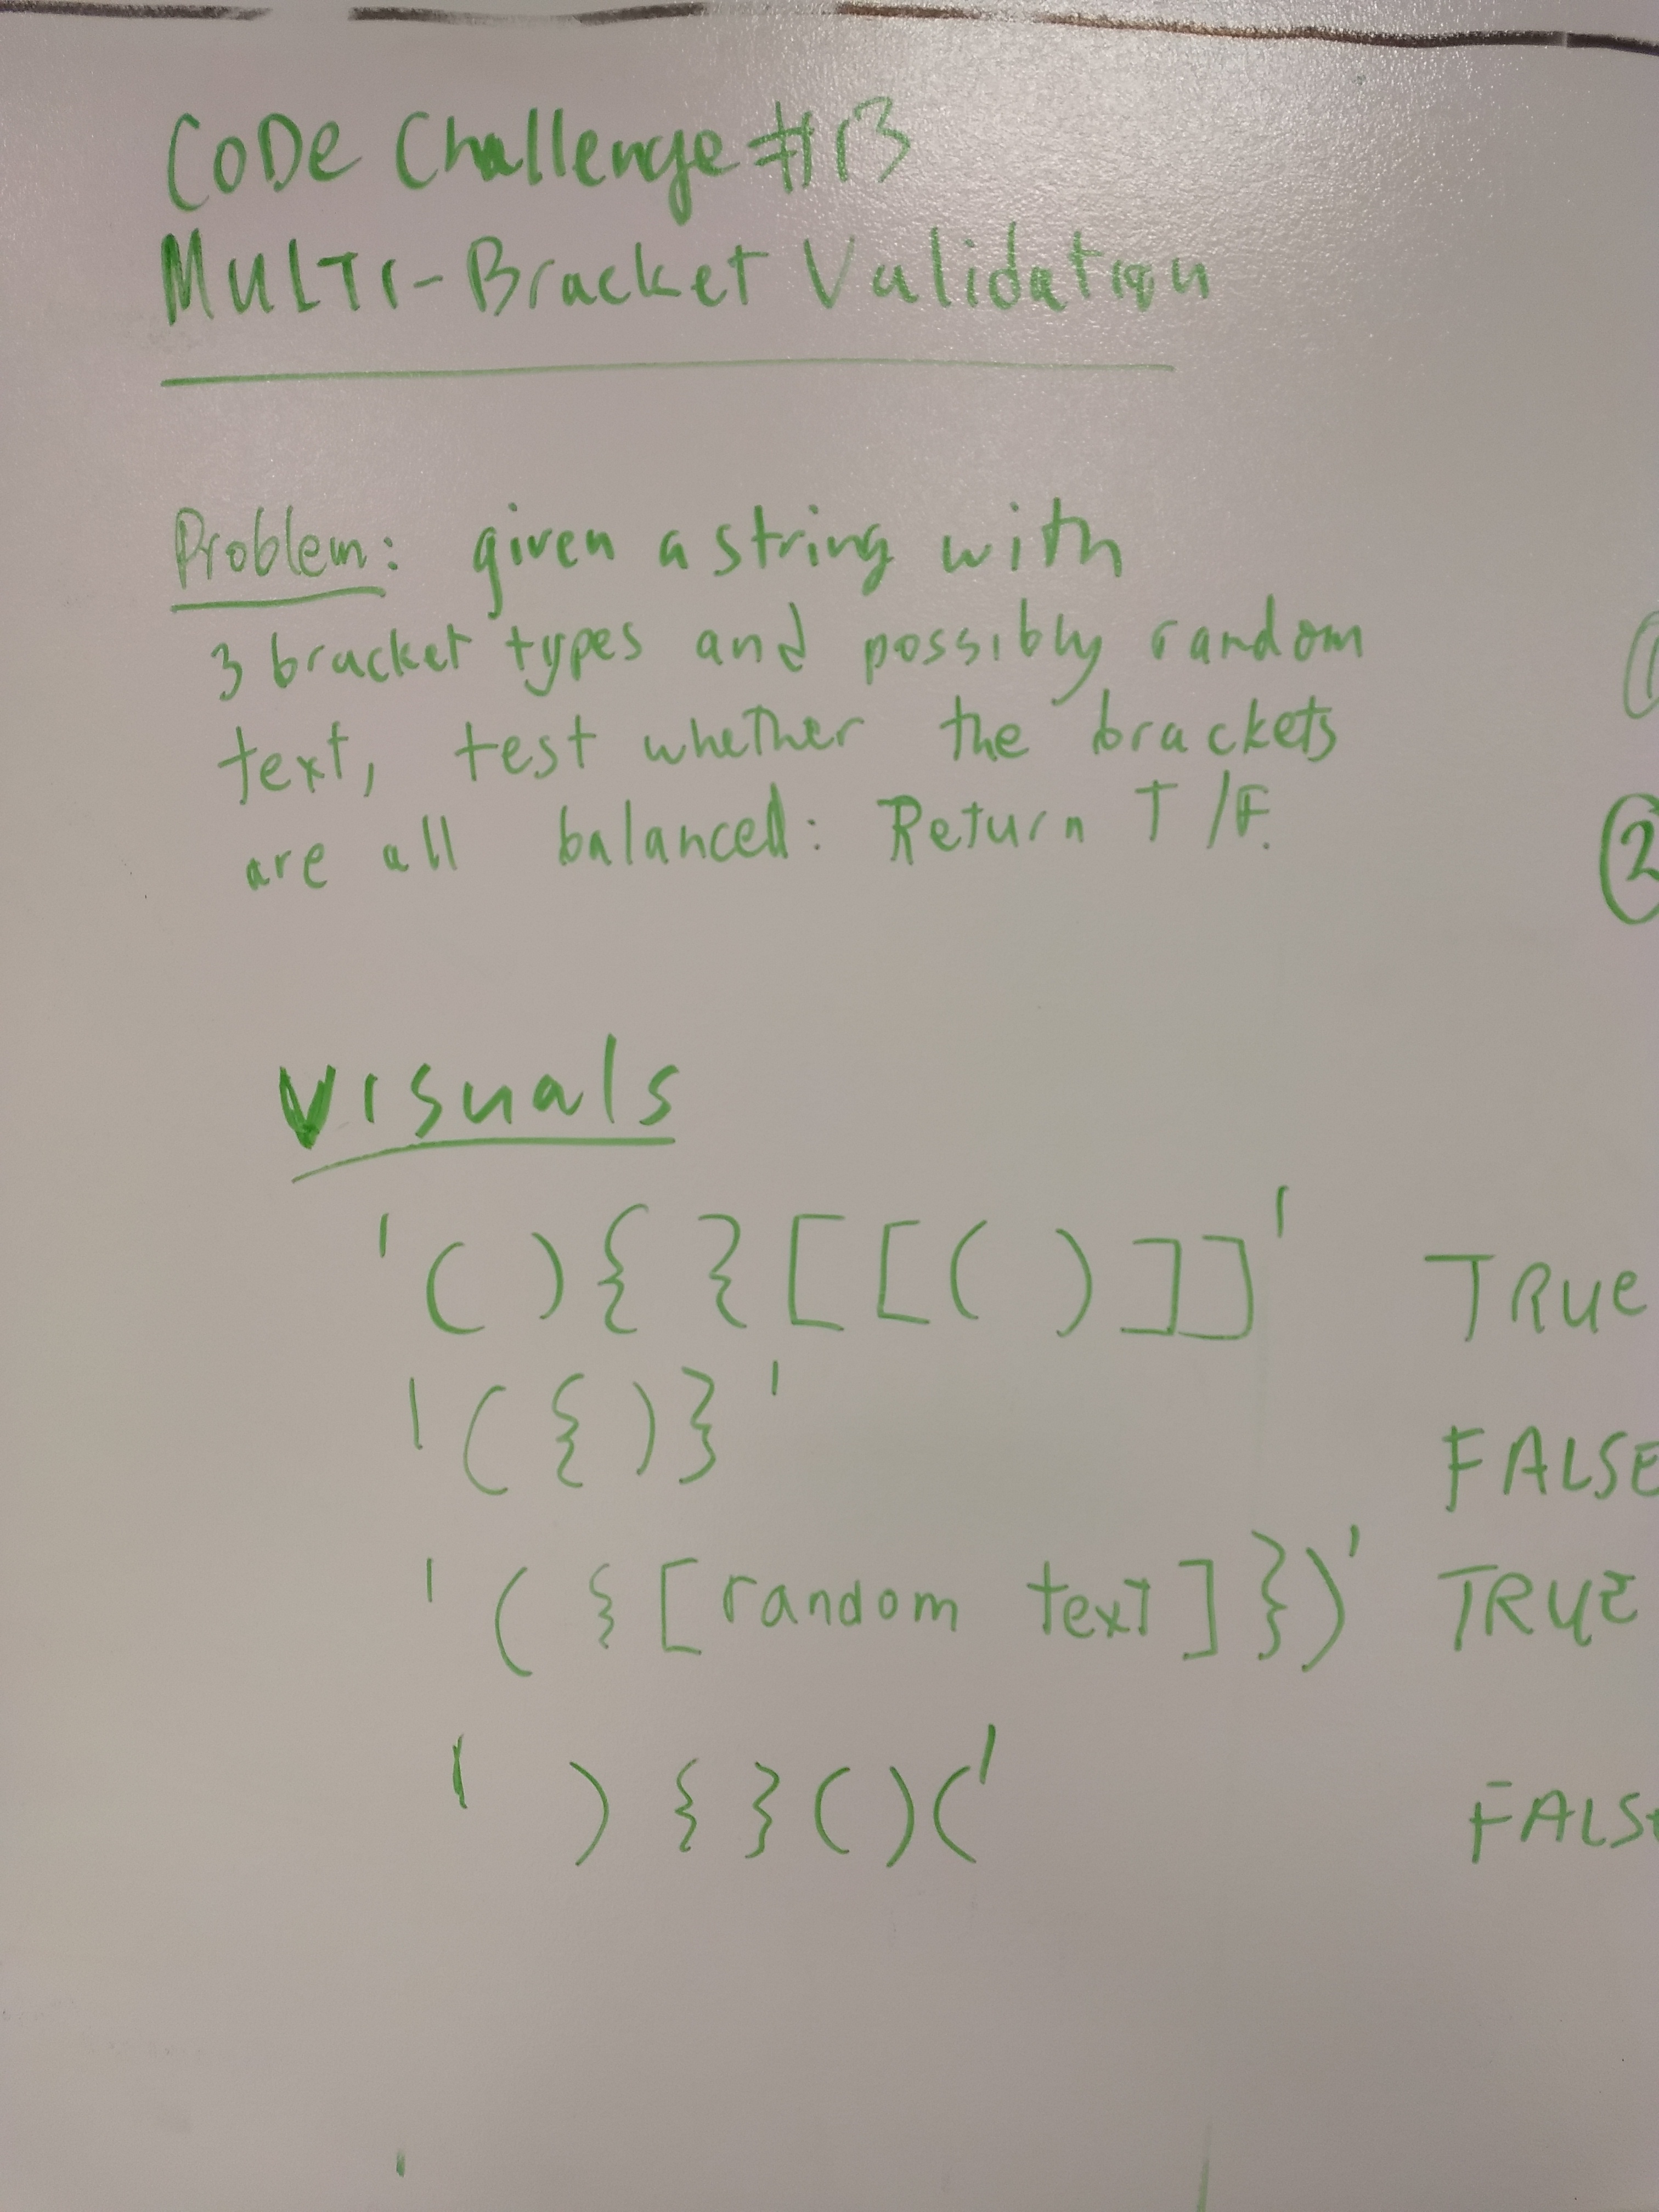 CODE Challenge #13
MULTI-Bracket Validation
Problem: given a string with
3 bracket types and possibly random
text, test whether the brackets
are all balanced: Return T/F.
Visuals
'(){}[[()]]' TRUE
'({)}' FALSE
'({[random text]})' TRUE
'){}()(' FALSE
2